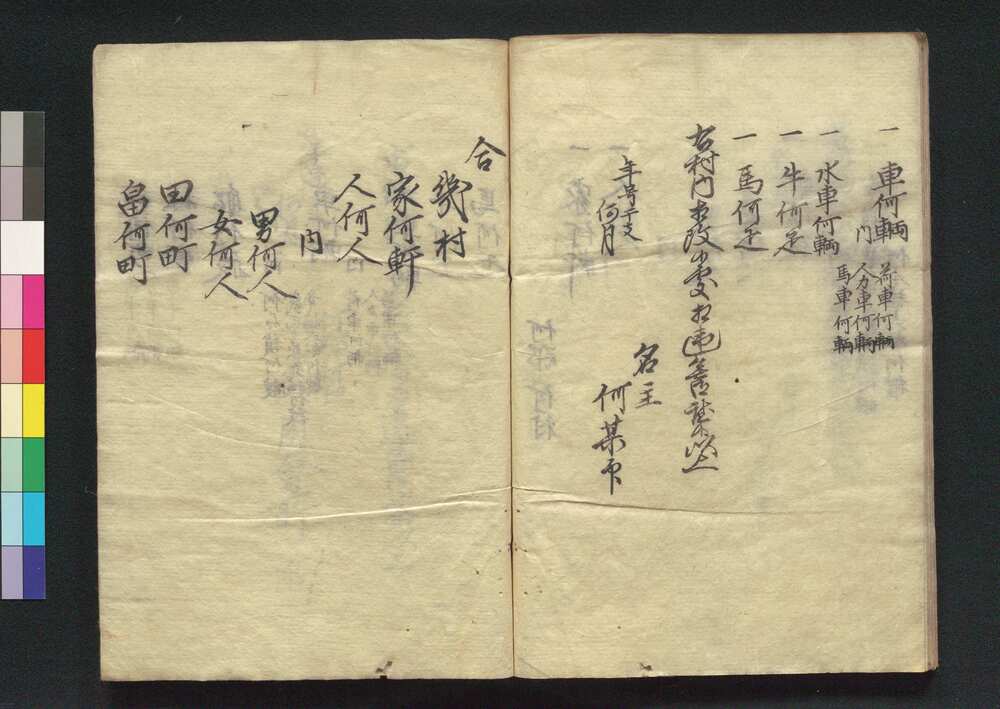 一 車何輌
内 荷車何輌
人力車何輌
馬車何輌
一 水車何輌
一 牛何疋
一 馬何疋
右村内相改候処相違無御座候以上
年号干支
何月
名主
何某印
合
幾村
家何軒
人何人
内
男何人
女何人
田何町
畠何町